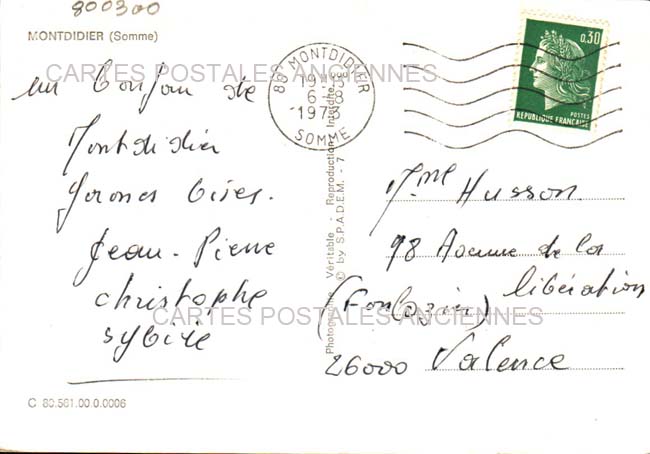 800300
MONTDIDIER (Somme)
CARTES POSTALES ANCIENNES
un bonjour de
Montdidier
Bises.
Jean-Pierre
christophe
sybille
C 80.561.00.0.0006
80 MONTDIDIER
19H
6-8
1973
SOMME
Photographie Véritable - Reproduction Interdite
© by S.P.A.D.E.M. - 7
0,30
POSTES
REPUBLIQUE FRANCAISE
Mme Husson
98 Avenue de la
libération
(Fontlozier)
CARTES POSTALES ANCIENNES
26000 Valence